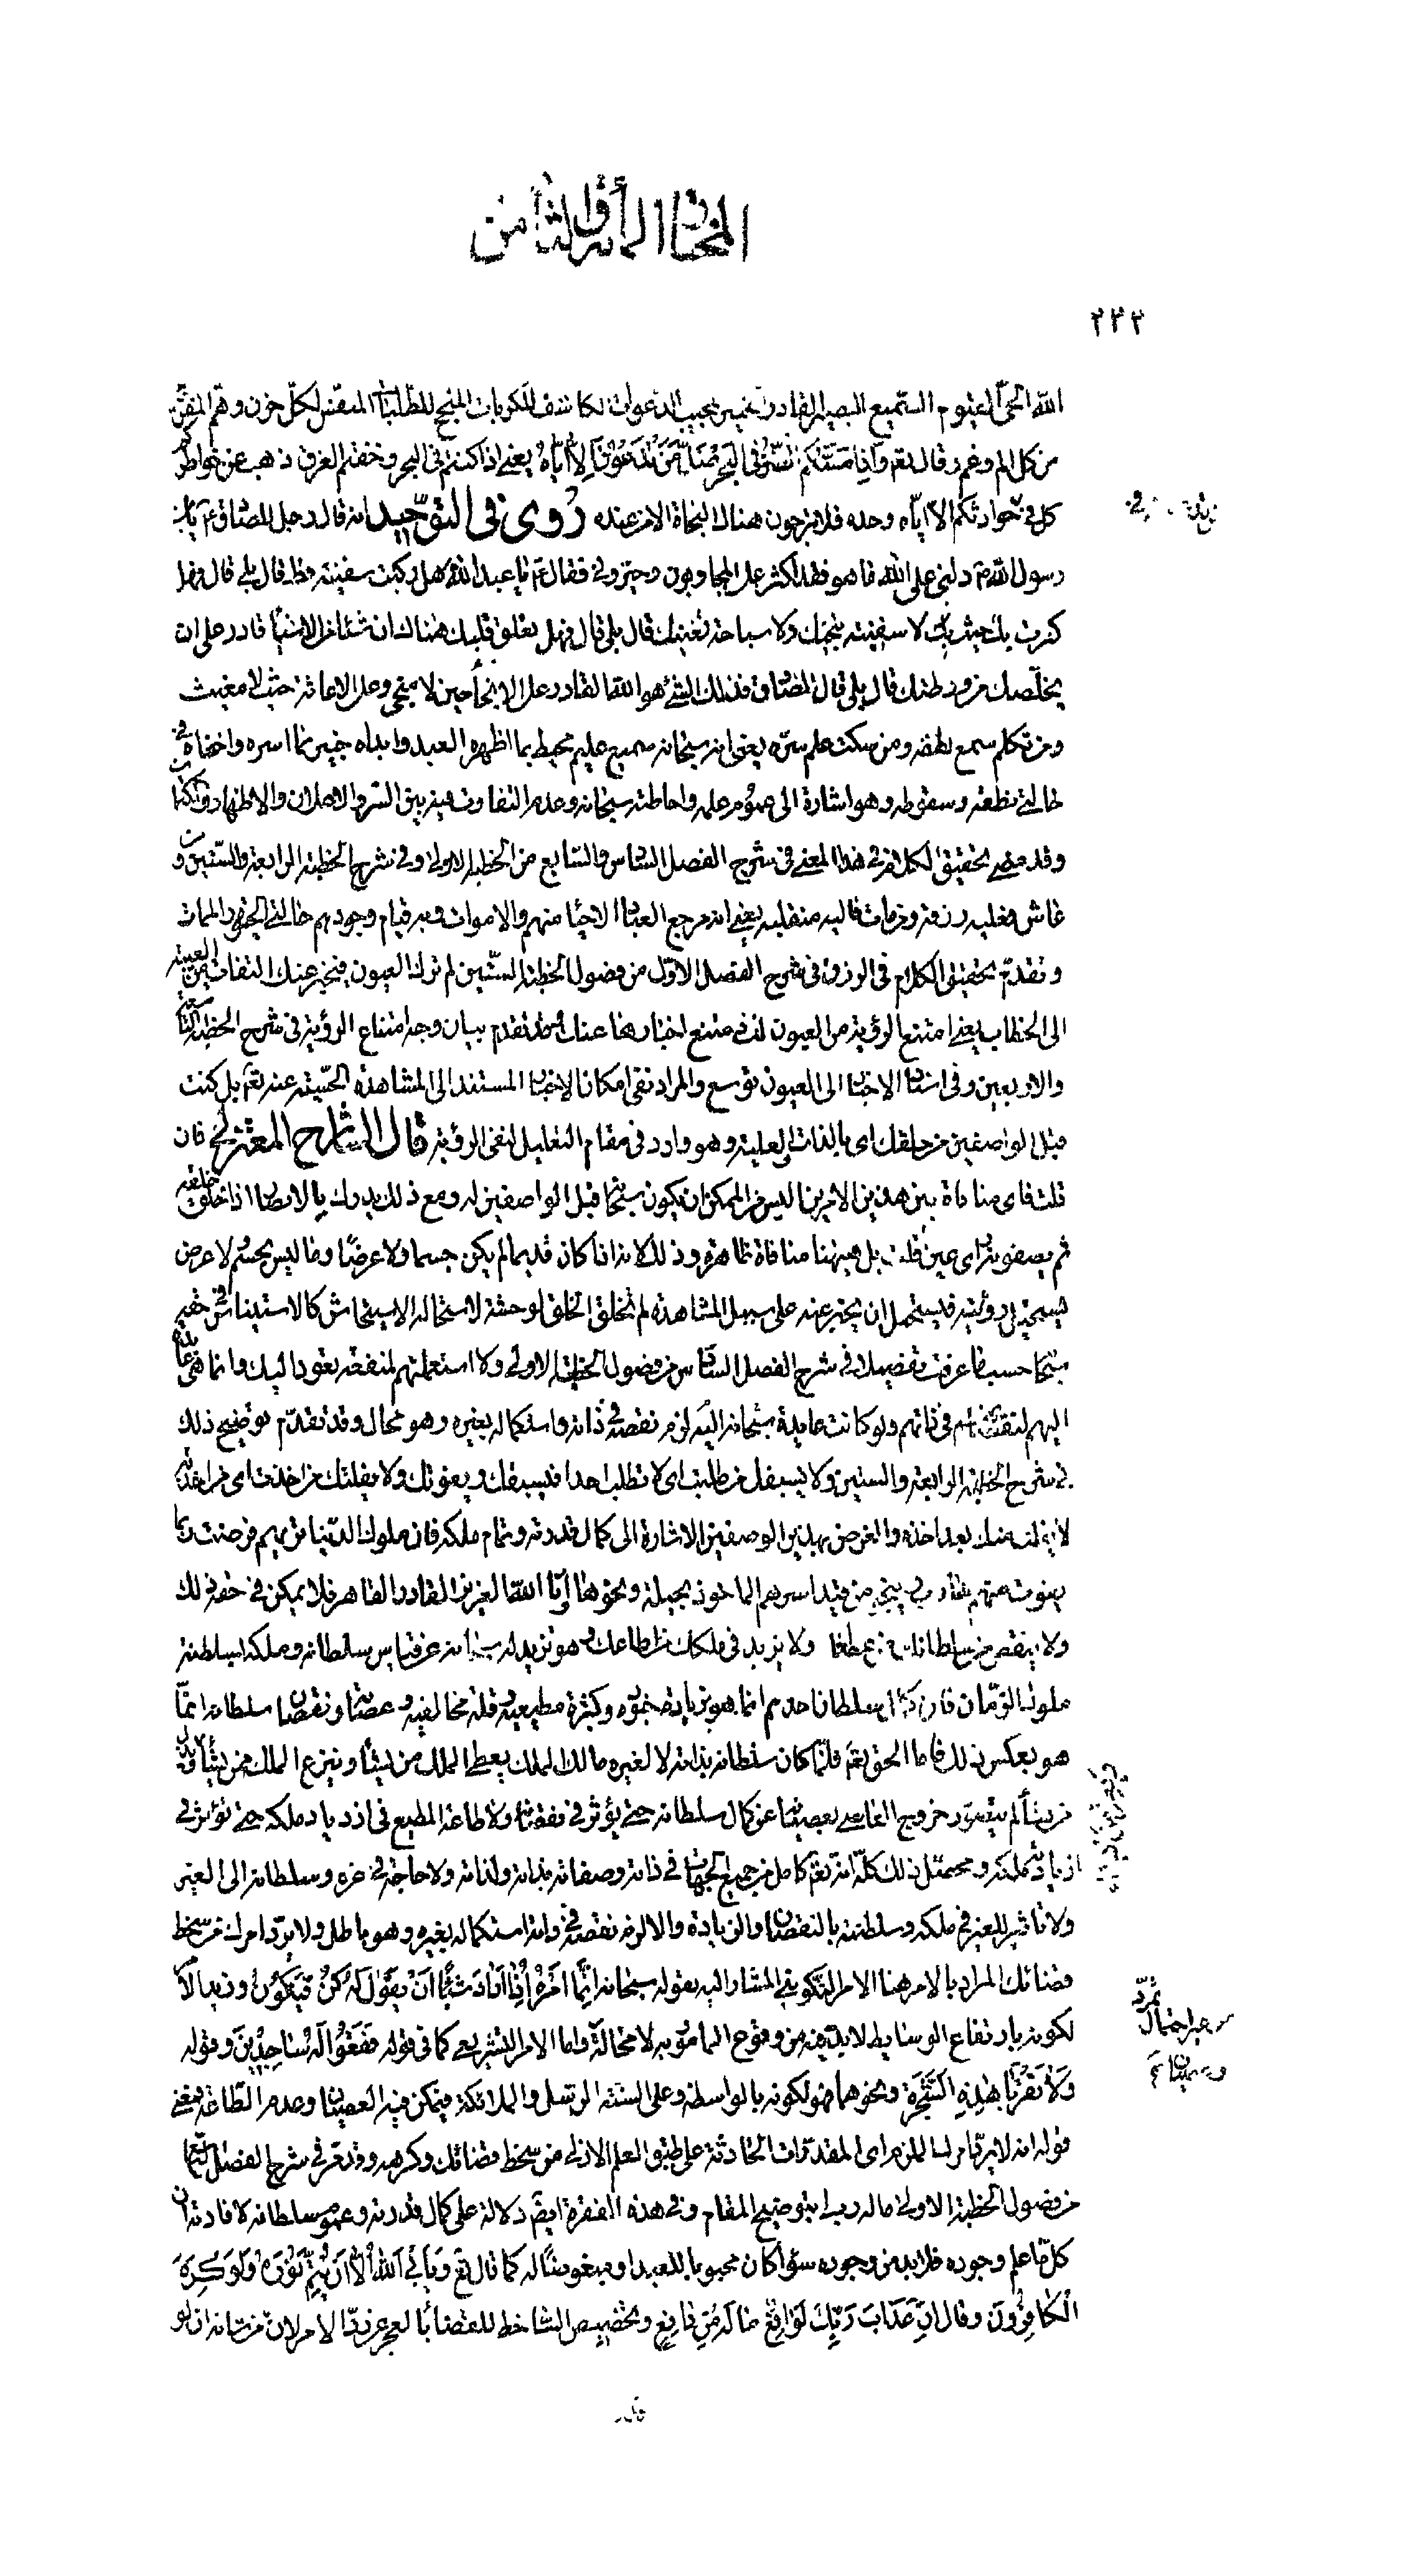 المختار المأة والثامن
٢٣٢
الله الحىّ القيوم السّميع البصير القادر الخبير مجيب الدّعوات الكاشف للكربات المنجح للطّلبات المنفّس لكلّ حزن وهمّ المفرّج
من كلّ الم وغم وقال تعم وَاِذا مَسَّكُمُ الضُّرُّ فِى البَحرِ ضَلَّ مَن تَدعُونَ اِلّا اِيّاهُ يعنى اذا كنتم فى البحر وخفتم الغرق ذهب عن خواطركم
كل فى حوادثكم الا ايّاه وحده فلا ترجون هناك النجاة الا من عنده رُوى فى التوحيد انه قال رجل للصّادق ع يا بن
رسول الله ص دلنى على الله ما هو فقد اكثر على المجادلون وحيّرونى فقال ع يا عبد الله هل ركبت سفينته قط قال بلى قال فهل
كسرت بك حيث لا سفينته تنجيك ولا سباحة تغنيك قال بلى قال فهل تعلق قلبك هنالك ان شئا من الاشياء قادر على ان
يخلّصك من ورطتك قال بلى قال الصّادق فذلك الشئ هو الله القادر على الانجاء حين لا منجى وعلى الاغاثة حيث لا مغيث
ومن تكلم سمع نطقه ومن سكت علم سرّه يعنى انه سبحانه سميع عليم محيط بما اظهره العبد وابداه خبير بما اسره واخفاه فى
حالتى نطقه وسقوطه وهو اشارة الى عموم علمه واحاطته سبحانه وعدم التفاوت فيه بين السّر والاعلان والاظهار والكتمان
وقد مضى تحقيق الكلام فى هذا المعنى فى شرح الفصل السّادس والسّابع من الخطبة الاولى وفى شرح الخطبة الرابعة والسّتين ومن
عاش فعليه رزقه ومن مات فاليه منقلبه يعنى انه مرجع العباد الاحياء منهم والاموات وبه قيام وجودهم حالتى الحيوة والممات
وتقدّم تحقيق الكلام فى الرزق فى شرح الفصل الاوّل من فصول الخطبة التّسعين لم ترك العيون فتخبر عنك التفات من الغيبة
الى الخطاب يعنى امتنع الرؤية من العيون لك فامتنع اخبارها عنك وقد تقدم بيان وجه امتناع الرؤية فى شرح الخطبة التّاسعة
والاربعين وفى اسناد الاخبار الى العيون توسع والمراد نفى امكان الاخبار المستند الى المشاهدة الحسّية عنه تعم بل كنت
قبل الواصفين من خلقك اى بالذات والعلية وهو وارد فى مقام التعليل لنفى الرؤية قال الشارح المعتزلى فان
قلت فاى منافاة بين هذين الامرين اليس من الممكن ان يكون سبحانه قبل الواصفين له ومع ذلك يدرك بالابصار اذا خلق خلقه
ثم يصفونه راى عين قلت بل هيهنا منافاة ظاهرة وذلك لانه اذا كان قديما لم يكن جسما ولا عرضًا وما ليس بجسم لا عرض
فيستحيل رؤيته فيستحيل ان يخبر عنه على سبيل المشاهدة لم تخلق الخلق لوحشة لاستحالة الاستيحاش كالاستيناس فى حقه
سبحانه حسبما عرفت تفصيلا فى شرح الفصل السّادس من فصول الخطبة الاولى ولا استعملتهم لمنفعة تعود اليك وانما هى عائدة
اليهم لنقصانهم فى ذاتهم ولو كانت عايدة سبحانه اليه لزم نقصه فى ذاته واستكماله بغيره وهو محال وقد تقدّم توضيح ذلك
فى شرح الخطبة الرابعة والستين ولا يسبقك من طلبت اى لا تطلب احدا فيسبقك ويفوتك ولا يفلتك من اخذت اى من اخذته
لا يفلت منك بعد اخذه والغرض بهذين الوصفين الاشارة الى كمال قدرته وتمام ملكه فان ملوك الدّنيا من يهم فرصت ربما
يفوت عنهم هارب ينجو من قيد اسرهم المأخوذ بحيلة ونحوها وامّا الله العزيز القادر القاهر فلا يمكن فى حقه ذلك
ولا ينقص سلطانك من عصاك ولا يزيد فى ملكك من اطاعك وهو تنزيه له سبحانه عن قياس سلطانه وملكه بسلطنة
ملوك الزّمان فان كمال سلطان احدهم انما هو بزيادة جنوده وكثرة مطيعيه وقلة مخالفيه وعصاته ونقصان سلطانه انمّا
هو بعكس ذلك فاما الحق تعم فلمّا كان سلطانه بذاته لا لغيره مالك الملك يعطى الملك من يشأ وينزع الملك ممن يشأ ويذل
من يشأ لم يتصوّر خروج العاصى بعصيانه عن كمال سلطانه حتى يؤثر فى نقصانه ولا طاعة المطيع فى ازدياد ملكه حتى تؤثر فى
ازديادته ملكه ومحصّل ذلك كلّه انّه تعم كامل من جميع الجهات فى ذاته وصفاته بذاته ولذاته ولا حاجة فى عزه وسلطانه الى الغير
ولا تاثير للغير فى ملكه وسلطنته بالنقصان والزيادة والا لزم نقصه فى ذاته واستكماله بغيره وهو باطل ولا يردّ امرك من سخط
قضائك المراد بالامر هنا الامر التّكوينى المشار اليه بقوله سبحانه اِنَّما اَمرُهُ اِذا اَرادَ شَيئًا اَن يَقُولَ لَهُ كُن فَيَكُونُ وهذا الامر
لكونه بارتفاع الوسايط لابدّ فيه من وقوع المامور به لا محالة واما الامر التشريعى كما فى قوله فَقَعُوا لَهُ ساجِدينَ وقوله
وَلا تَقرَبا هٰذِهِ الشَّجَرَةَ ونحوهما فهو لكونه بالواسطة وعلى السنة الرّسل والملائكة فيمكن فيه العصيان وعدم الطّاعة فمعنى
قوله انه لا يردّ امره الملزم اى المقدّرات الحادثة على طبق العلم الازلى من سخط قضائك وكرهه وقد مرّ فى شرح الفصل التاسع
من فصول الخطبة الاولى ما له ربط بتوضيح المقام وفى هذه الفقرة ايضم دلالة على كمال قدرته وعموم سلطانه لافادته ان
كل ما علم وجوده فلا بد من وجوده سواء كان محبوبا للعبد او مبغوضًا له كما قال تعم وَيَأبَى اللهُ اِلّا اَن يُتِمَّ نُورَهُ وَلَو كَرِهَ
الْكافِرُونَ وقال اِنَّ عَذابَ رَبِّكَ لَواقِعٌ ما لَهُ مِن دافِعٍ وتخصيص السّاخط للقضاء بالعجز عن ردّ الامر لانّ من شانه ان لو
قدر